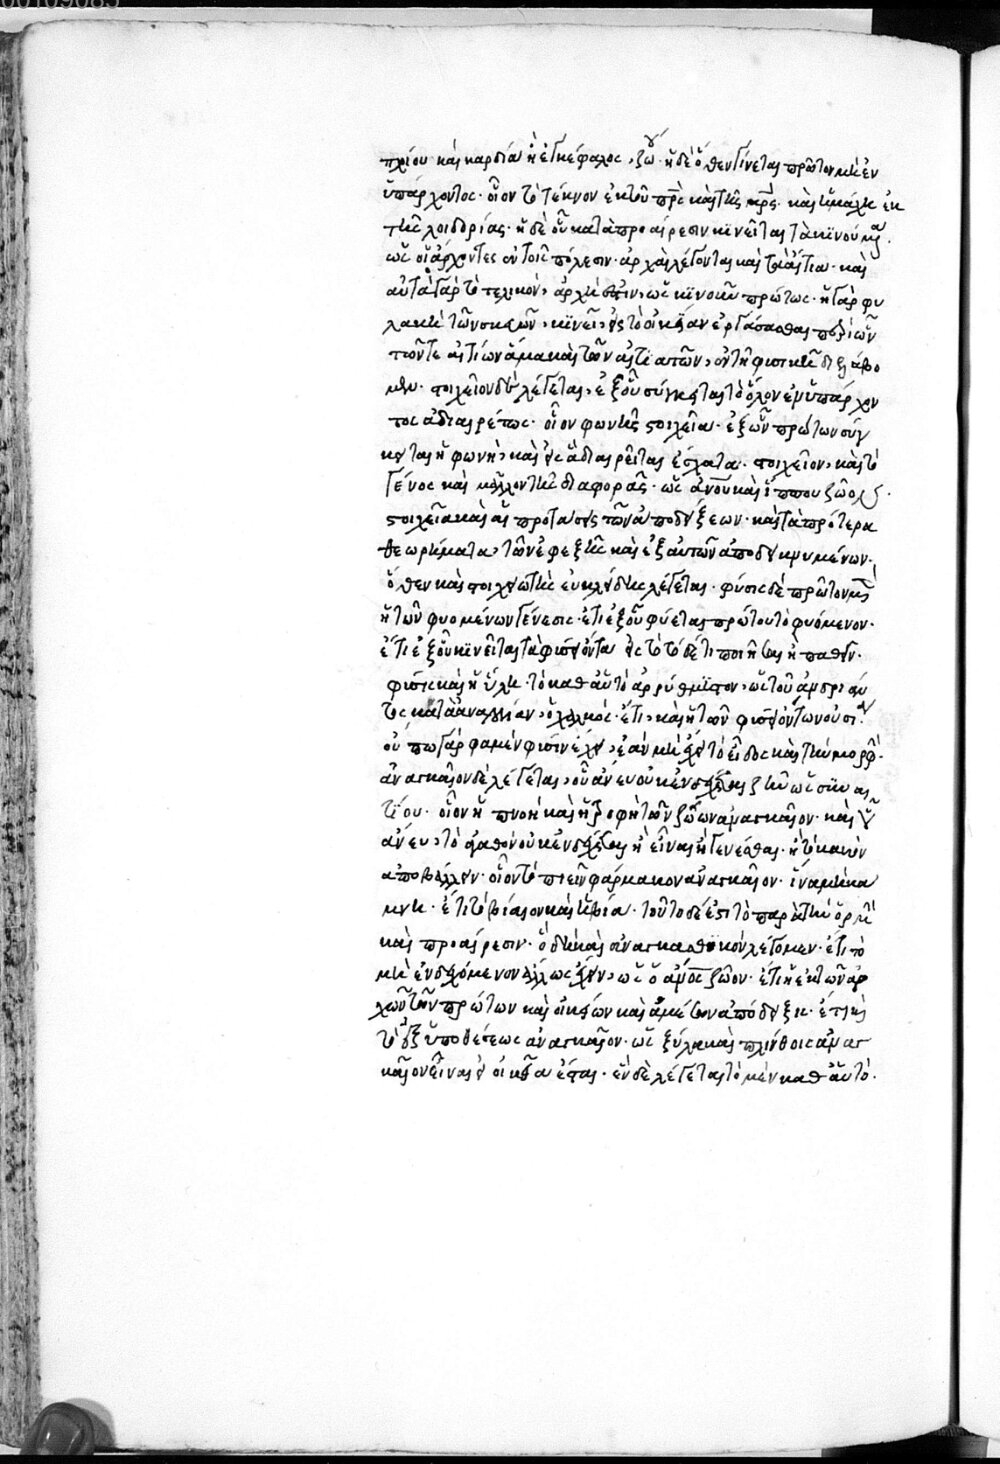 πλοίου καὶ καρδία ἢ ἐγκέφαλος ζώου· ἡ δὲ ὅθεν γίνεται πρῶτον μὴ ἐν
ὑπάρχοντος· οἷον τὸ τέκνον ἐκ τοῦ πρς καὶ τῆς μρς· καὶ ἡ μάχη ἐκ
τῆς λοιδορίας· ἡ δὲ οὗ κατὰ προαίρεσιν κινεῖται τὰ κινούμενα·
ὡς οἱ ἄρχοντες ἐν τοῖς πόλεσιν· ἀρχαὶ λέγονται καὶ τὰ αἴτια· καὶ
αὐτὸ γὰρ τὸ τελικὸν, ἀρχή ἐστιν, ὡς κινοῦν πρώτως· ἡ γὰρ φυ
λακὴ τῶν σκευῶν, κινεῖ εἰς τὸ οἰκίαν ἐργάσασθαι περὶ ὧν
πάντων αἰτίων ἅμα καὶ τῶν αἰτιατῶν, ἐν τῇ φυσικῇ διελάβο
μεν· στοιχεῖον δὲ λέγεται, ἐξ οὗ σύγκειται τὸ ὅλον ἐνυπάρχον
τος ἀδιαιρέτως· οἷον φωνῆς στοιχεῖα· ἐξ ὧν πρώτων σύγ
κειται ἡ φωνὴ, καὶ εἰς ἃ διαιρεῖται ἔσχατα· στοιχεῖον, καὶ τὸ
γένος καὶ μᾶλλον τῆς διαφορᾶς· ὡς ἀνου καὶ ἵππου ζῶον
στοιχεῖα καὶ αἱ προτάσεις τῶν ἀποδείξεων· καὶ τὰ πρότερα
θεωρήματα, τῶν ἐφεξῆς καὶ ἐξ αὐτῶν ἀποδεικνυμένων·
ὅθεν καὶ στοιχειωτὴς εὐκλείδης λέγεται· φύσις δὲ πρῶτον μὲν
ἡ τῶν φυομένων γένεσις· ἔτι ἐξ οὗ φύεται πρώτου τὸ φυόμενον·
ἔτι ἐξ οὗ κινεῖται τὰ φύσει ὄντα εἰς τὸ τόδε τι ποιῆσαι ἢ παθεῖν·
φύσις καὶ ἡ ὕλη· τὸ καθ αὑτὸ ἀρρύθμιστον, ὡς τοῦ ἀνδριάν
τος κατὰ ἀναλογίαν, ὁ χαλκός· ἔτι, καὶ ἡ τῶν φύσει ὄντων οὐσία·
οὔπω γάρ φαμεν φύσιν ἔχειν, ἐὰν μὴ ἔχῃ τὸ εἶδος καὶ τὴν μορφήν·
ἀναγκαῖον δὲ λέγεται, οὗ ἄνευ οὐκ ἐνδέχεται ζῆν ὡς συναι
τίου· οἷον ἡ πνοὴ καὶ ἡ τροφὴ τῶν ζώων ἀναγκαῖον· καὶ ὧν
ἄνευ, τὸ ἀγαθὸν οὐκ ἐνδέχεται ἢ εἶναι ἢ γενέσθαι· ἢ τὸ κακὸν
ἀποβάλλειν· οἷον τὸ πιεῖν φάρμακον ἀναγκαῖον· ἵνα μὴ κα
μνῃ· ἔτι τὸ βίαιον καὶ ἡ βία· τοῦτο δέ ἐστι τὸ παρὰ τὴν ὁρμὴν
καὶ προαίρεσιν· ὃ δὴ καὶ ἀναγκασθικὸν λέγομεν· ἔτι τὸ
μὴ ἐνδεχόμενον ἄλλως ἔχειν, ὡς ὁ ἀνος ζῶον· ἔτι ἡ ἐκ τῶν ἀρ
χῶν τῶν πρώτων καὶ οἰκείων καὶ ἀμέσων ἀπόδειξις· ἔτι καὶ
τὸ ἐξ ὑποθέσεως ἀναγκαῖον· ὡς ξύλα καὶ πλίνθοις ἀναγ
καῖον εἶναι εἰ οἰκία ἔσται· ἓν δὲ λέγεται τὸ μὲν καθ αὑτό·